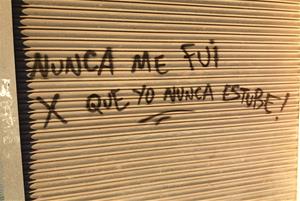 NUNCA ME FUI
X QUE YO NUNCA ESTUBE!